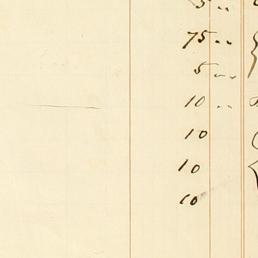 75 ..
5 ..
10 ..
10
10
10